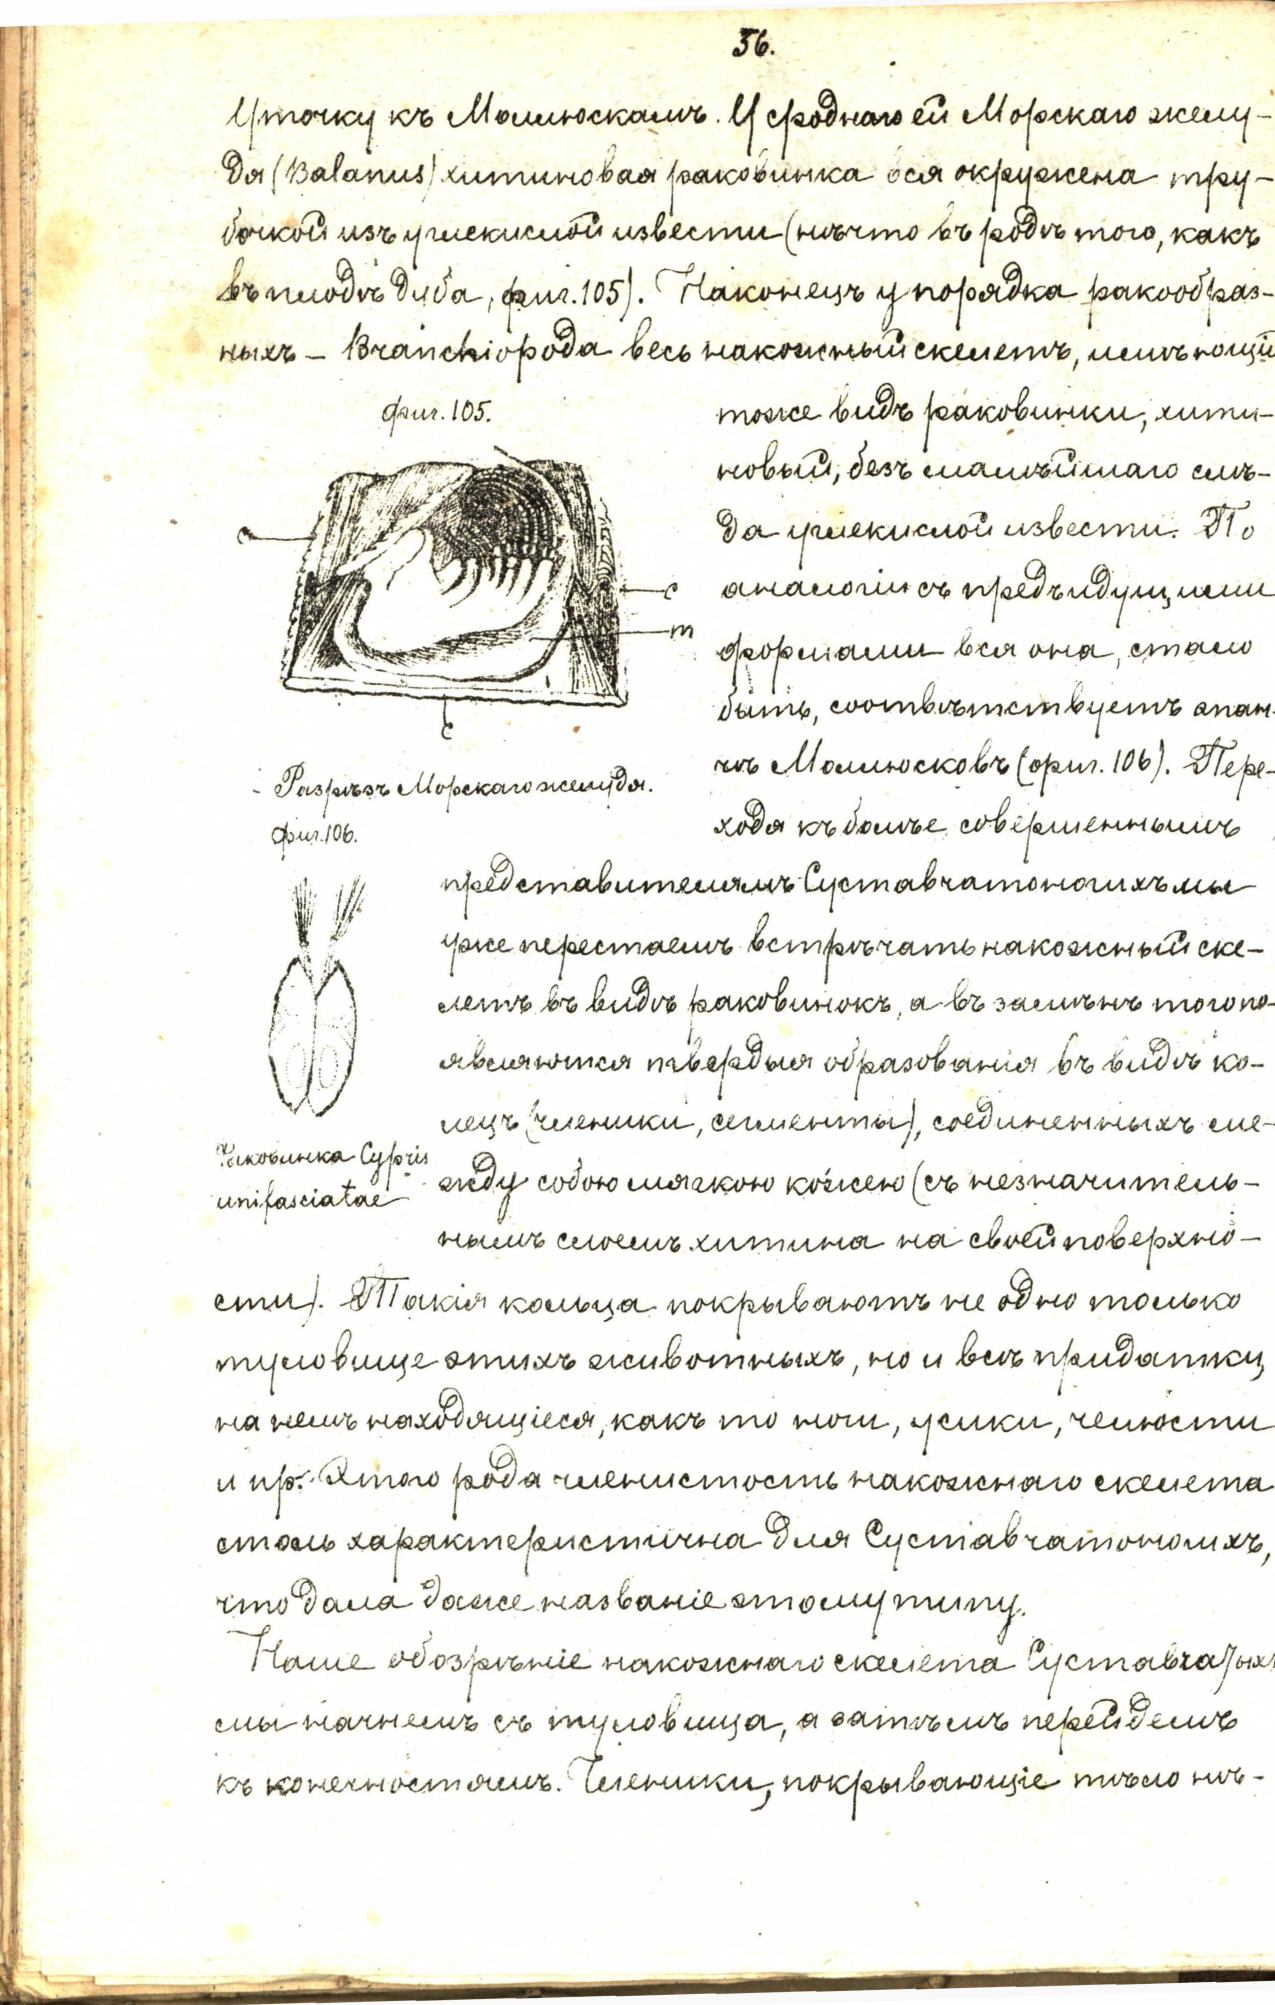 56.
Уточку къ Моллюскамъ. У сроднаго ей Морскаго желу-
дя (Balanus) хитиновая раковинка вся окружена тру-
бочкой изъ углекислой извести (нѣчто въ родѣ того, какъ
въ плодѣ дуба, фиг. 105). Наконецъ у порядка ракообраз-
ныхъ – Branchiopoda весь накожный скелетъ, имѣющій
фиг. 105.
тоже видъ раковинки, хити-
новый, безъ малѣйшаго слѣ-
да углекислой извести. По
аналогіи съ предъидущими
формами вся она, стало
быть, соотвѣтствуетъ эпан-
чѣ Моллюсковъ (фиг. 106). Пере-
ходя къ болѣе совершеннымъ
c
m
c
Разрѣзъ Морскаго желудя.
фиг. 106.
представителямъ Суставчатоногихъ мы
уже перестаемъ встрѣчать накожный ске-
летъ въ видѣ раковинокъ, а въ замѣнъ того по-
являются твердыя образованія въ видѣ ко-
лецъ (членики, сегменты), соединенныхъ ме-
жду собою мягкою кожею (съ незначитель-
нымъ слоемъ хитина на своей поверхно-
Раковинка Cypris
unifasciatae
сти). Такія кольца покрываютъ не одно только
туловище этихъ животныхъ, но и всѣ придатки,
на немъ находящіеся, какъ то ноги, усики, челюсти
и пр. Этого рода членистость накожнаго скелета
столь характеристична для Суставчатоногихъ,
что дала даже названіе этому типу.
Наше обозрѣніе накожнаго скелета Суставчатыхъ
мы начнемъ съ туловища, а затѣмъ перейдемъ
къ конечностямъ. Членики, покрывающіе тѣло нѣ-